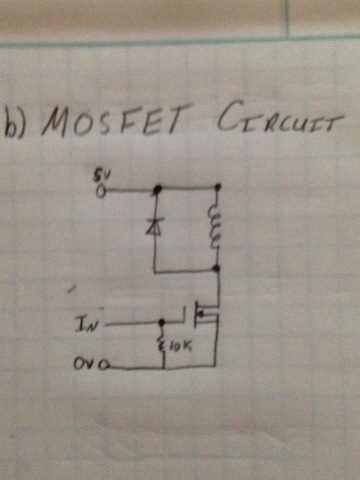 b) MOSFET CIRCUIT
5V
IN
10K
0V